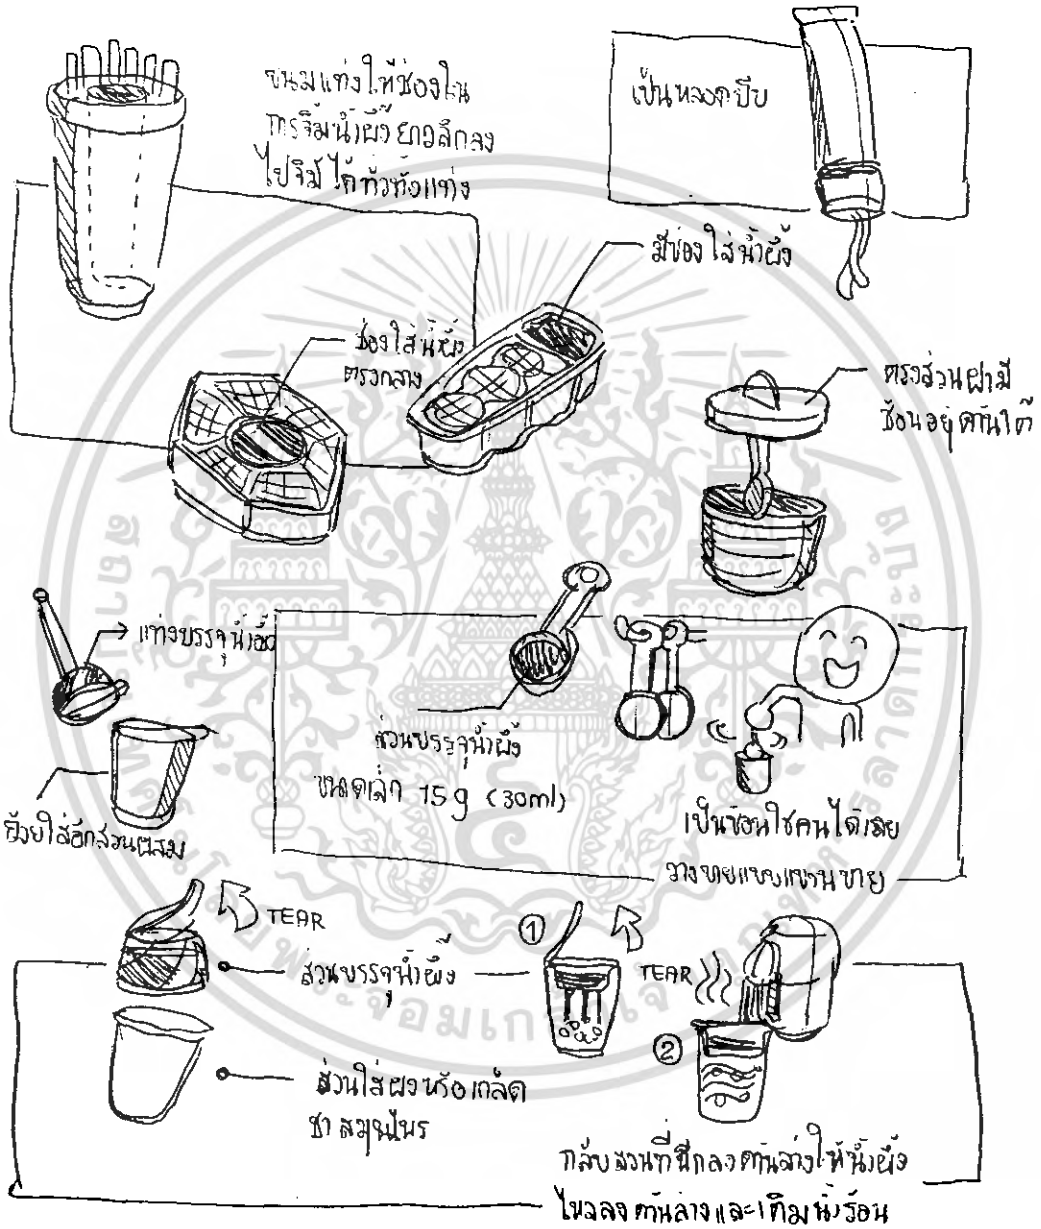 ขนมแท่งให้ช่องใน
การจิ้มน้ำผึ้งยาวลึกลง
ไปจิ้มได้ทั่วทั้งแท่ง
เป็นหลอดบีบ
มีช่องใส่น้ำผึ้ง
ช่องใส่น้ำผึ้ง
ตรงกลาง
ตรงส่วนฝามี
ช้อนอยู่ด้านใต้
แท่งบรรจุน้ำผึ้ง
ถ้วยใส่อีกส่วนผสม
ส่วนบรรจุน้ำผึ้ง
ขนาดเล็ก 15 g (30ml)
เป็นช้อนใช้คนได้เลย
วางขายแบบแขวนขาย
TEAR
ส่วนบรรจุน้ำผึ้ง
ส่วนใส่ผงหรือเกล็ด
ชาสมุนไพร
1
TEAR
2
กลับส่วนที่ฉีกลงด้านล่างให้น้ำผึ้ง
ไหลลงด้านล่างและเติมน้ำร้อน